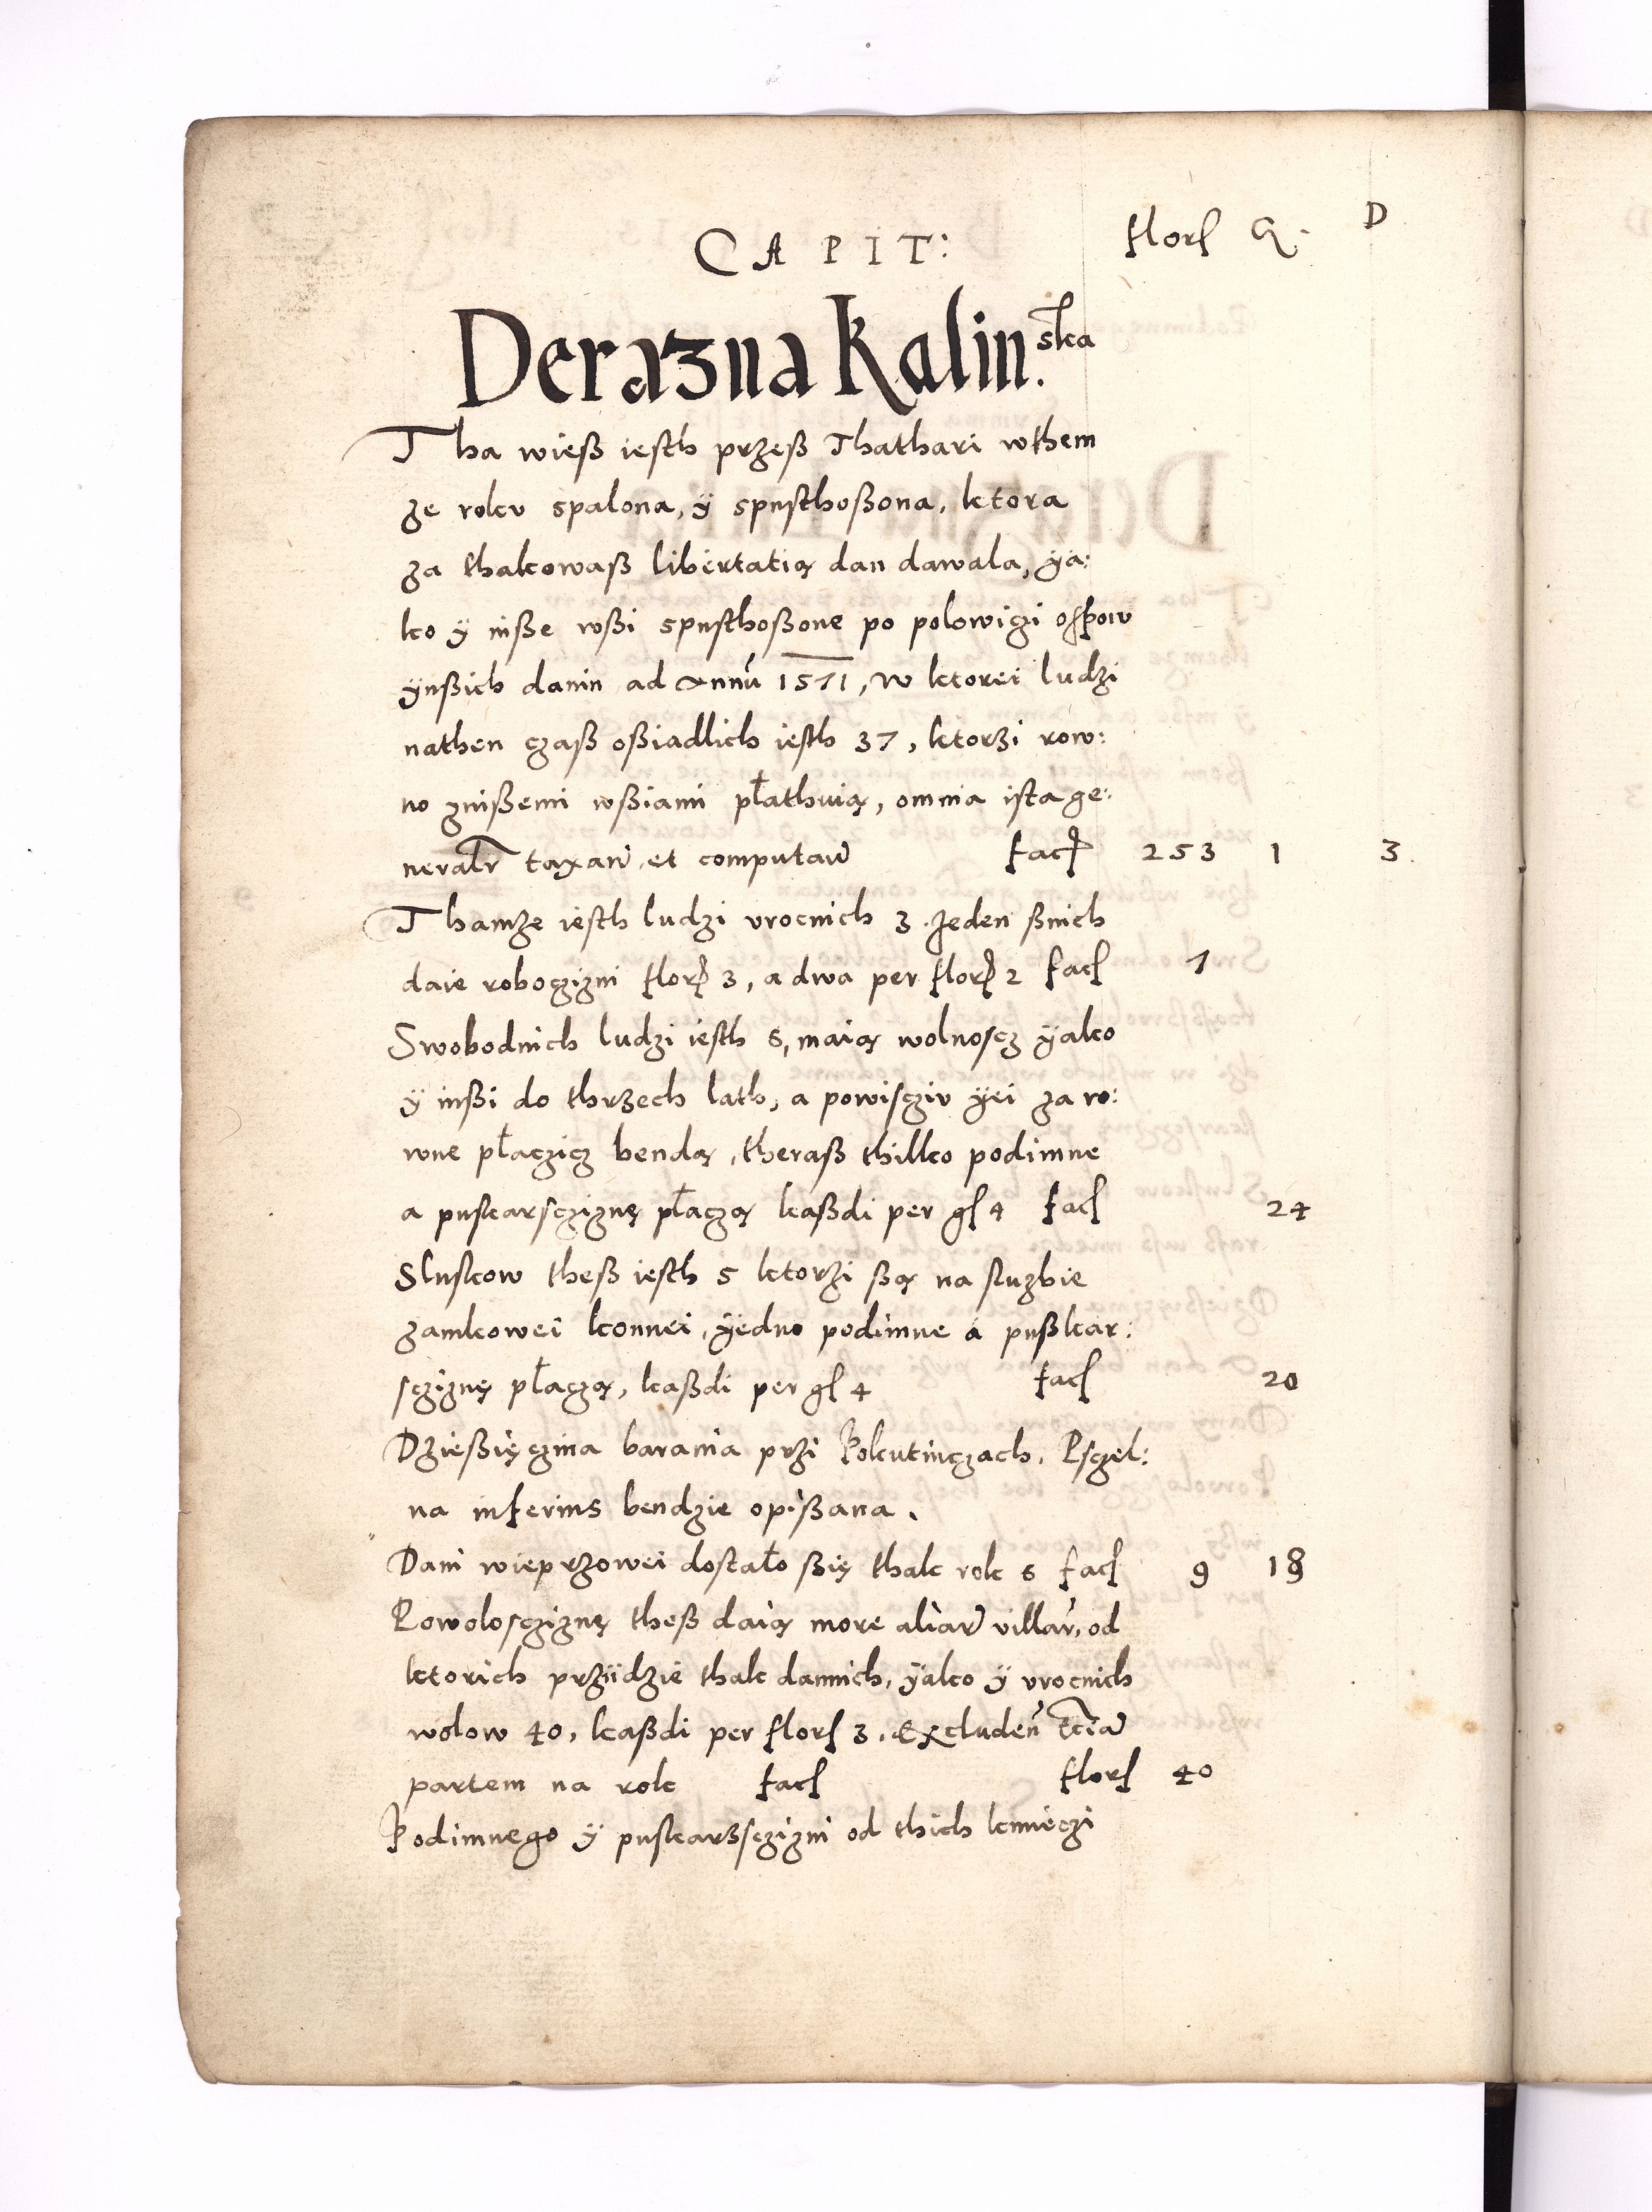 CAPIT: florſ G. D
Derazna Kalin.ska
Tha wieß iesth przeß Thathari wthem
ze roku spalona, ÿ spusthoßona, ktora
za thakowaß libertatią dan dawala, ÿa:
ko ÿ inße wßi spusthoßone po polowiczi ospow
ÿnßich danin ad Annũ 1571, w ktorei ludzi
nathen czaß oßiadlich iesth 37, ktorzi row:
no zinßemi wßiami płathuią, omnia ista ge:
neralr taxan et computan facſ 253 1 3.
Thamze iesth ludzi urocnich 3. Jeden ßnich
daie roboczizni florſ 3, a dwa per florſ 2 facſ 7
Swobodnich ludzi iesth 6, maią wolnoscz ÿako
ÿ inßi do thrzech lath, a powisciu ÿei za ro:
wne płaczicz bendą, theraß thilko podimne
a puskarscziznę płaczą kaßdi per gſ 4 facſ 24
Sluskow theß iesth 5 ktorzi ßą na sluzbie
zamkowei konnei, ÿedno podimne á pußkar:
scziznę płaczą, kaßdi per gſ 4 facſ 20
Dzießięczina barania przi Pokutinczach, Psczel:
na inferius bendzie opißana.
Dani wieprzowei dostało ßię thak rok 6 facſ 9 18
Powoloscziznę theß daią more aliar villar, od
ktorich prziidzie thak dannich, ÿako ÿ urocnich
wolow 40, kaßdi per florſ 3, Excluden tcia
partem na rok facſ florſ 40
Podimnego ÿ puskarzsczizni od thich kmieczi